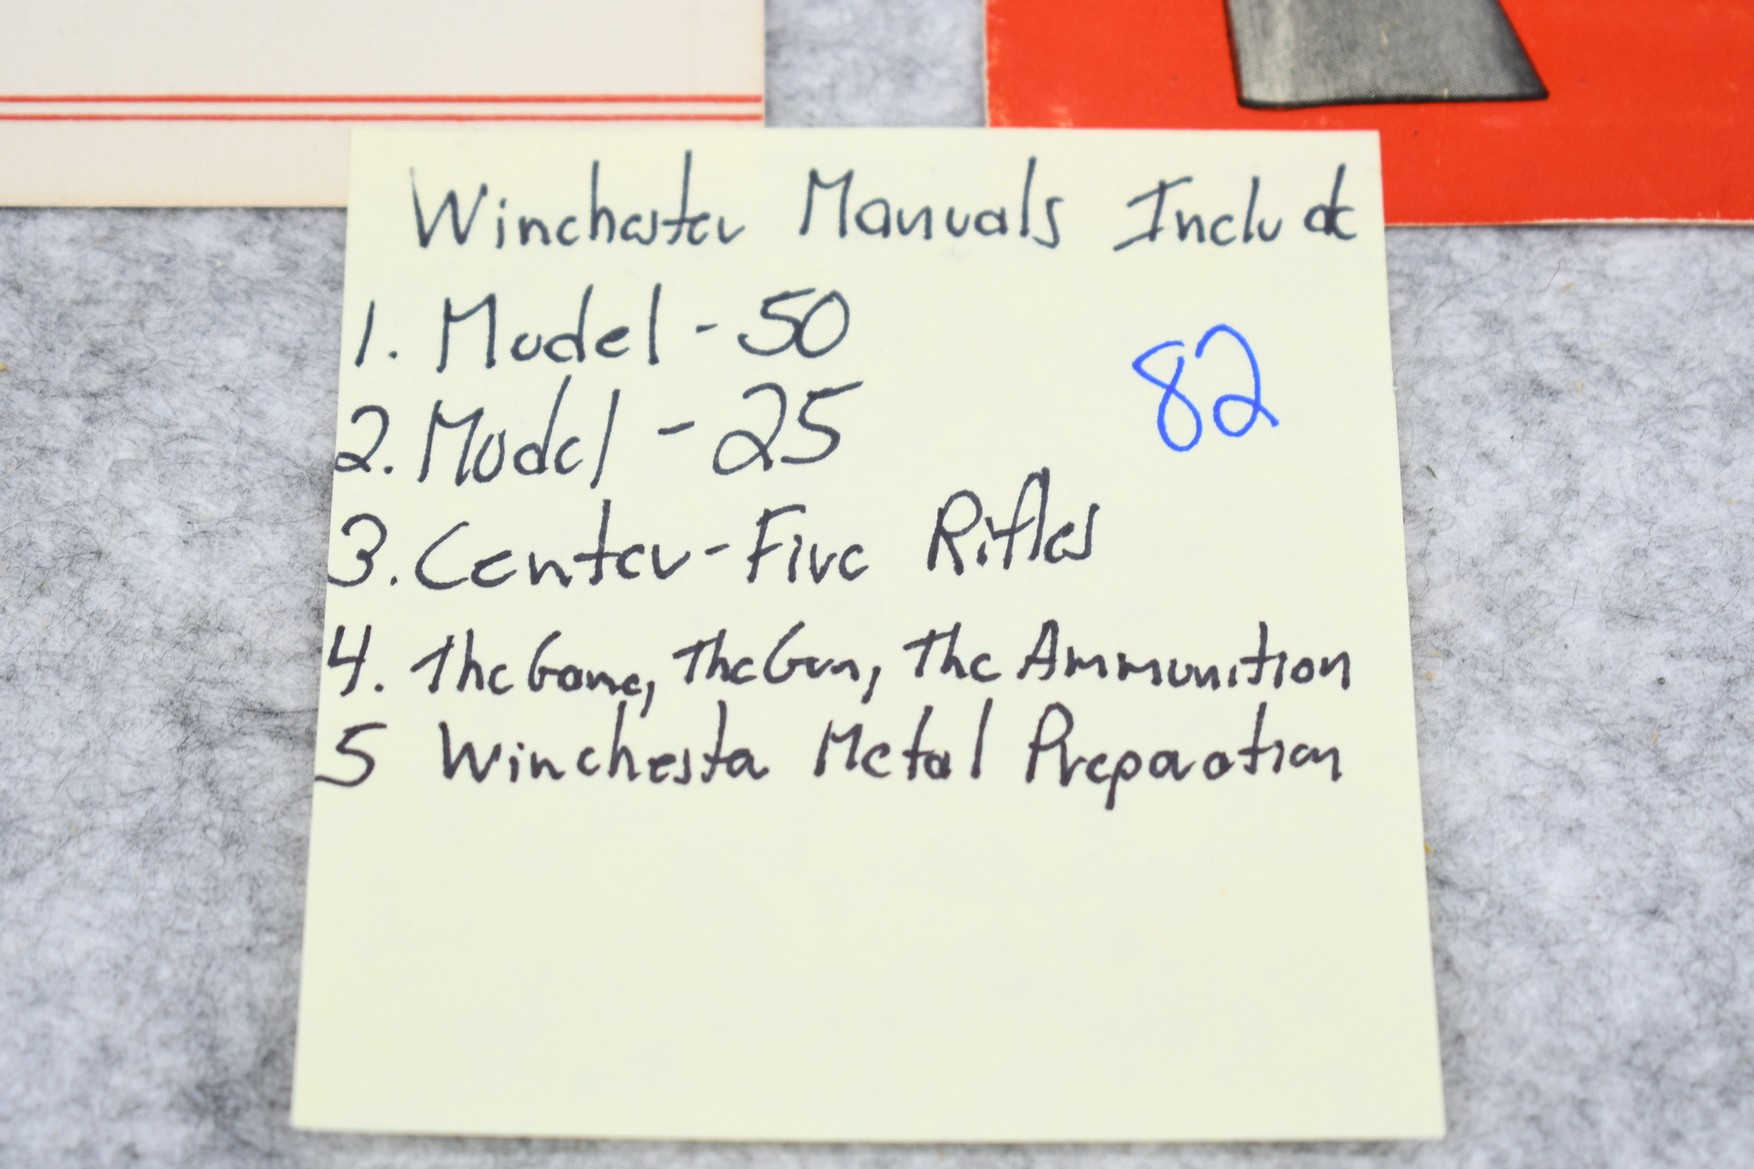 Winchester Manuals Include
1. Model - 50
82
2. Model - 25
3. Center-Fire Rifles
4. The Game, The Gun, The Ammunition
5 Winchester Metal Preparation